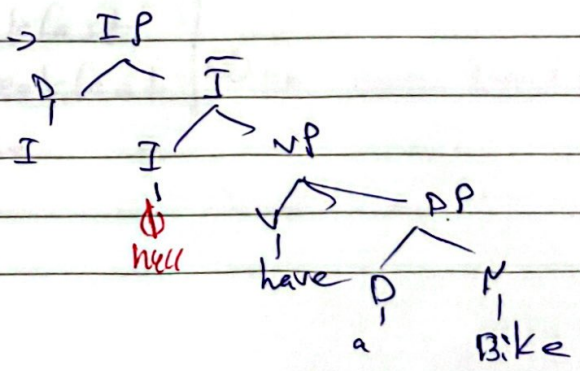 → I P
D Ī
I I VP
ϕ V D.P
null have D N
a Bike